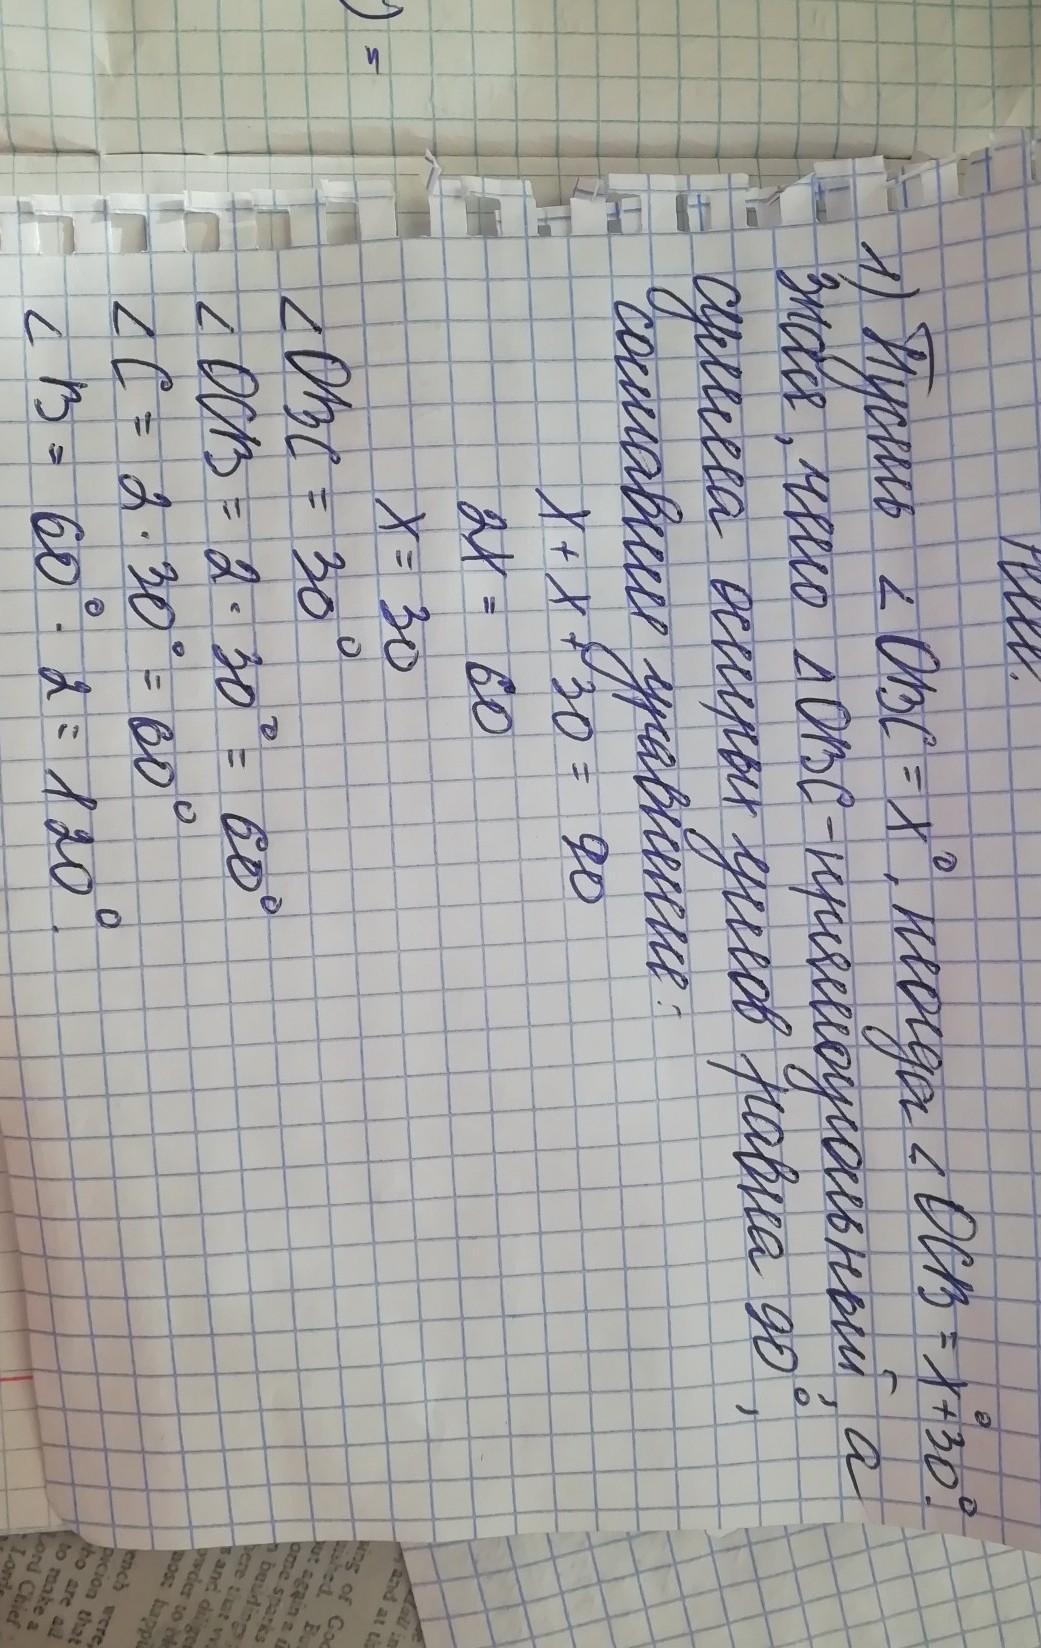 Реш.
1) Пусть ∠ OBC = x°, тогда ∠ OCB = x°+30°.
Зная, что △ OBC - прямоугольный, а
сумма острых углов равна 90°,
составим уравнение:
x + x + 30 = 90
2x = 60
x = 30
∠ OBC = 30°
∠ OCB = 2 · 30° = 60°
∠ C = 2 · 30° = 60°
∠ B = 60° · 2 = 120°.